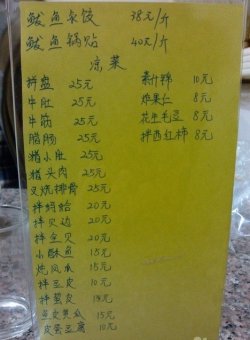 鲅鱼水饺 38元/斤
鲅鱼锅贴 40元/斤
凉菜
拼盘 25元
牛肚 25元
牛筋 25元
腊肠 25元
猪小肚 25元
猪头肉 25元
叉烧排骨 25元
拌蚂蛤 20元
拌贝边 20元
拌全贝 20元
小酥鱼 15元
炝瓜瓜 15元
拌三皮 10元
拌蜇皮 18元
鱼皮黄瓜 15元
皮蛋豆腐 10元
素什锦 10元
炸果仁 8元
花生毛豆 8元
拌西红柿 8元